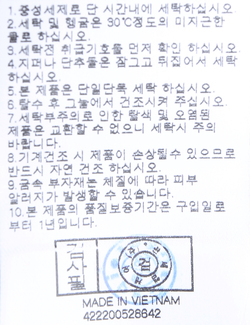 1. 중성세제로 단 시간내에 세탁하십시오
2. 세탁 및 헹굼은 30℃정도의 미지근한
물로 하십시오.
3. 세탁전 취급기호를 먼저 확인 하십시오
4. 지퍼나 단추들은 잠그고 뒤집어서 세탁
하십시오.
5. 본 제품은 단일단독 세탁 하십시오.
6 탈수 후 그늘에서 건조시켜 주십시오.
7. 세탁부주의로 인한 탈색 및 오염된
제품은 교환할 수 없으니 세탁시 주의
바랍니다.
8. 기계건조 시 제품이 손상될수 있으므로
반드시 자연 건조 하십시오.
9. 금속 부자재는 체질에 따라 피부
알러지가 발생할 수 있습니다.
10. 본 제품의 품질보증기간은 구입일로
부터 1년입니다.
검
사
품
검
MADE IN VIETNAM
422200528642